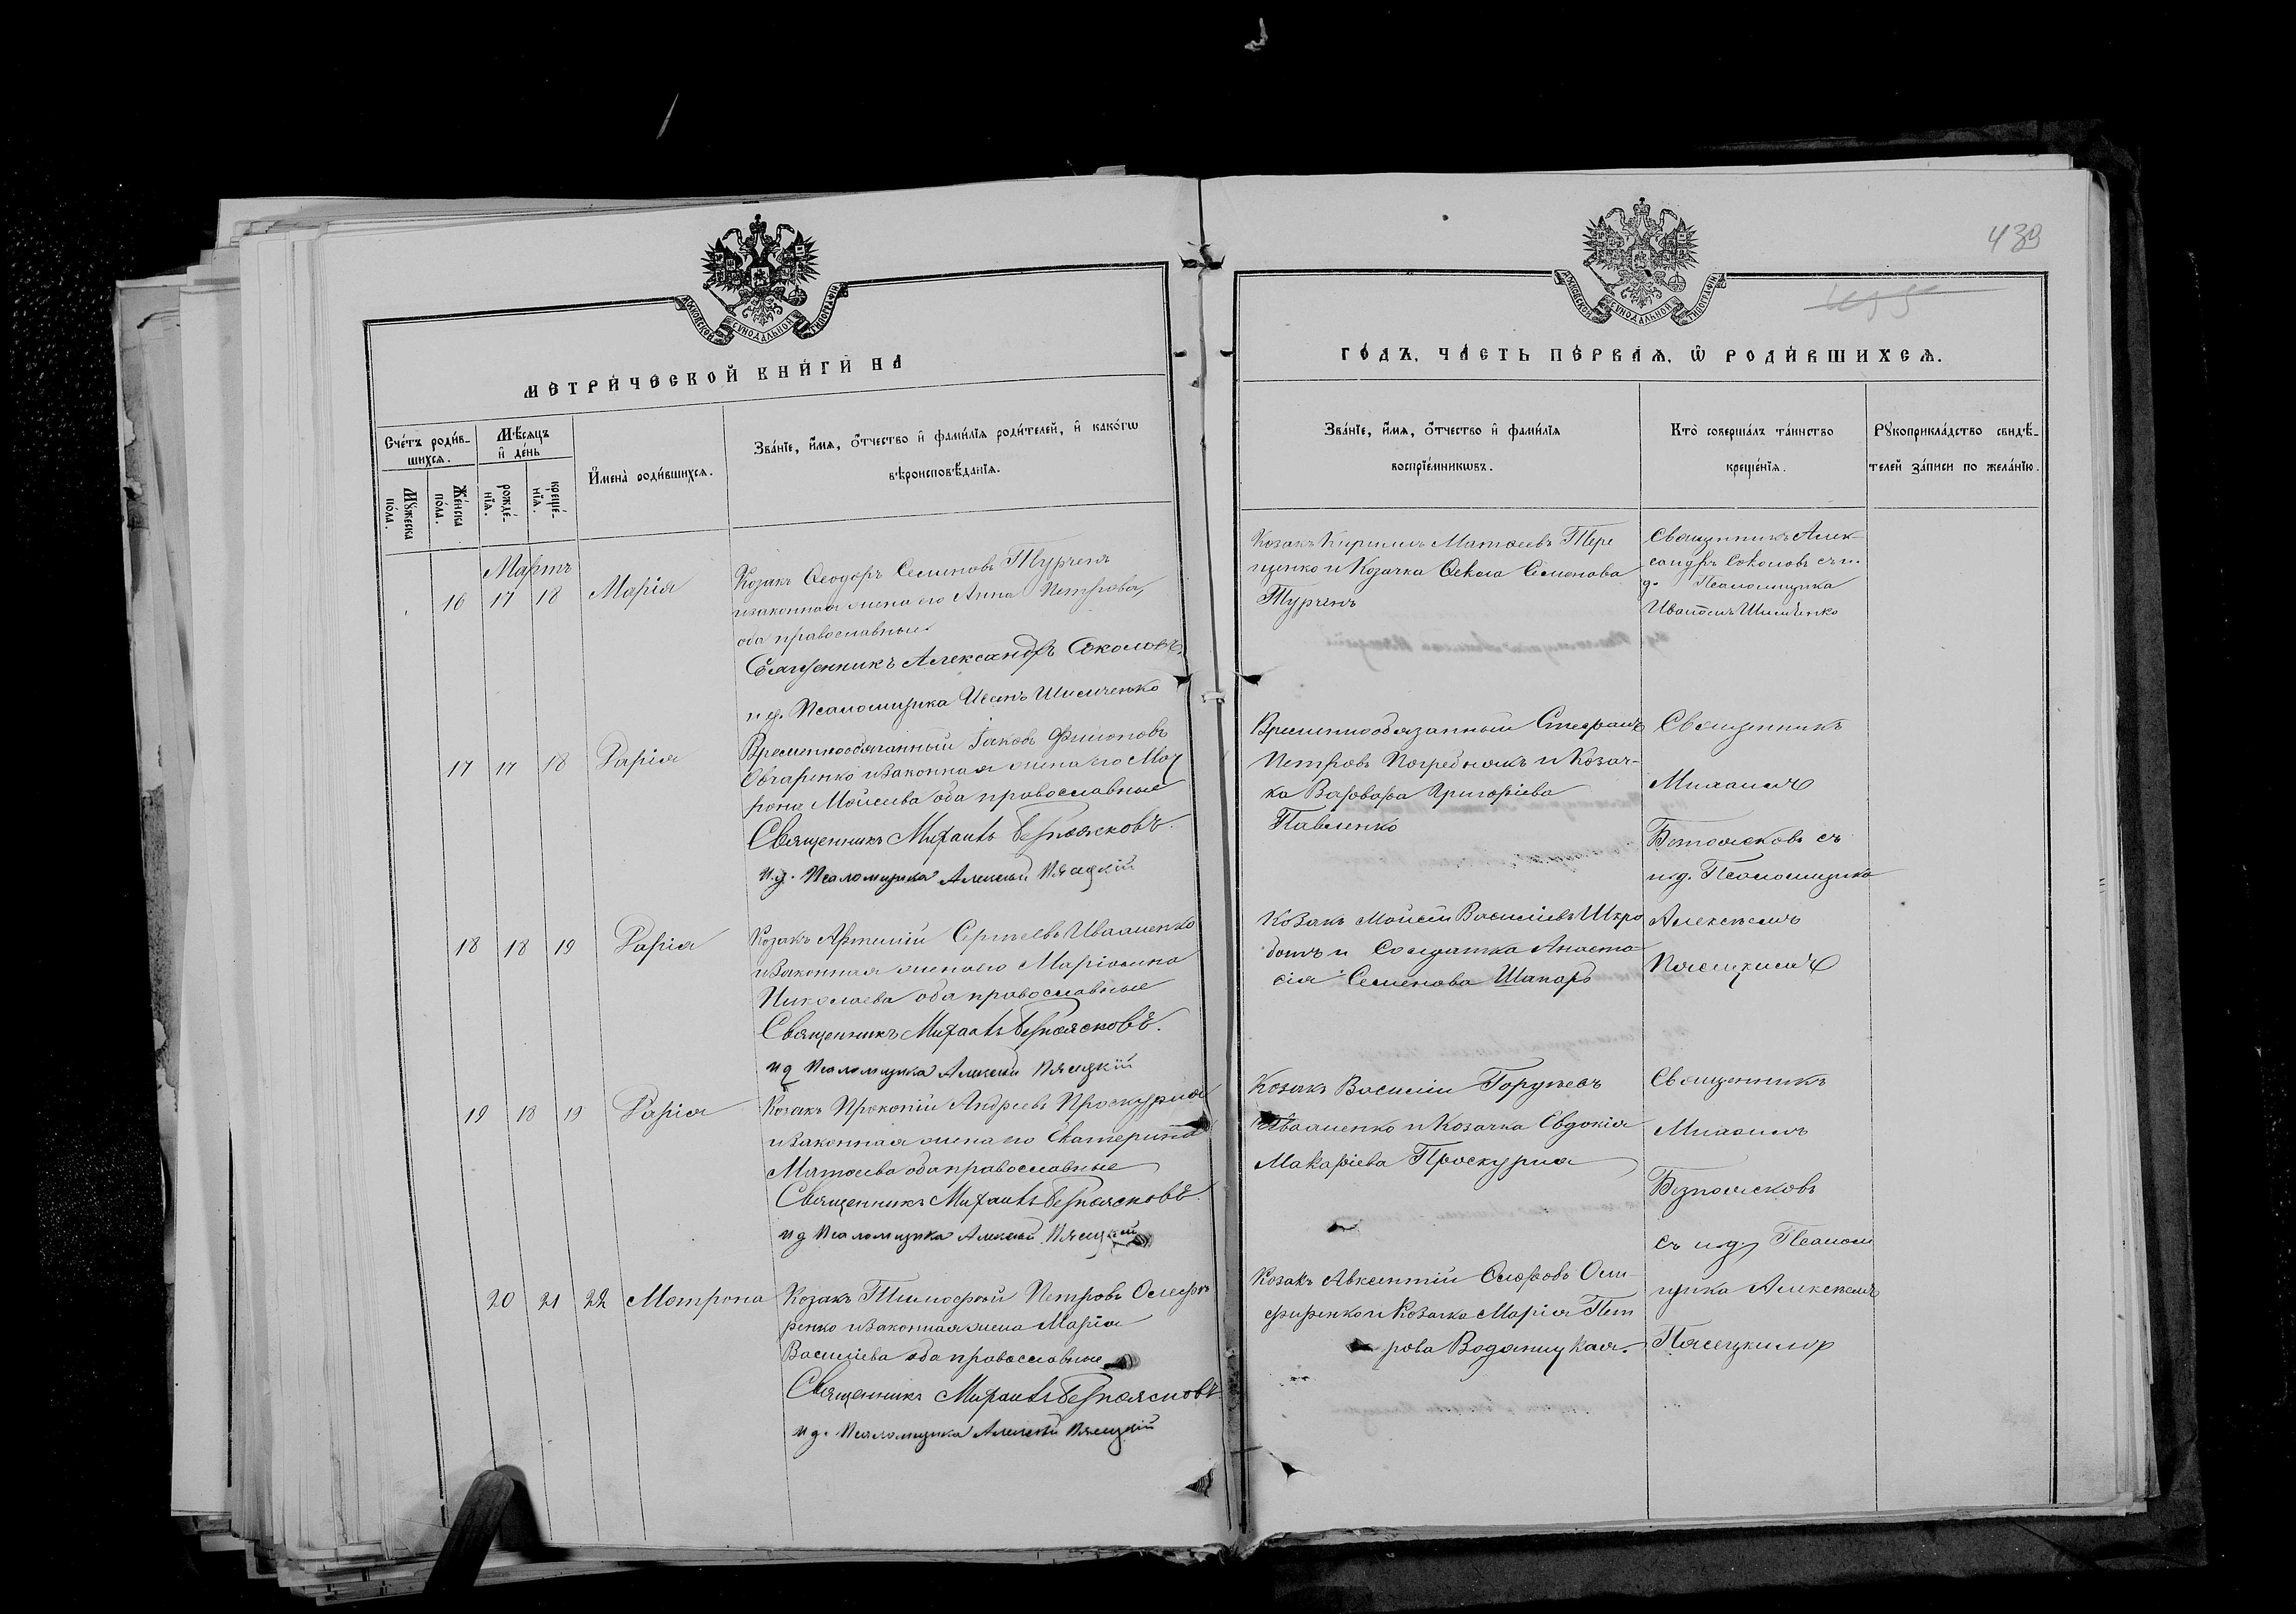 439
МОСКОВСКОЙ СѴНОДАЛЬНОЙ ТИПОГРАФІИ
МОСКОВСКОЙ СѴНОДАЛЬНОЙ ТИПОГРАФІИ
МЕТРИ́ЧЕСКОЙ КНИ́ГИ НА
ГО́ДЪ, ЧА́СТЬ ПЕ́РВАѦ, Ѿ РОДИ́ВШИХСѦ.
Сче́тъ роди́в-
шихсѧ.
Мꙋ́жеска по́ла.
Же́нска по́ла.
Мѣ́сѧцъ
и҆ де́нь
рожде́-
нїѧ.
креще́-
нїѧ.
И҆мена̀ роди́вшихсѧ.
Зва́нїе, и҆́мѧ, ѻ҆́тчество и҆ фами́лїѧ роди́телей, и҆ како́гѡ
вѣроисповѣ́данїѧ.
Зва́нїе, и҆́мѧ, ѻ҆́тчество и҆ фами́лїѧ
воспрїе́мникѡвъ.
Кто̀ соверша́лъ та́инство
креще́нїѧ.
Рꙋкоприкла́дство свидѣ́-
телей за́писи по жела́нїю.
Мартъ
16 17 18 Марія
Козакъ Ѳеодоръ Семиновъ Турченъ
и законная жена его Анна Петрова,
оба православные
Священникъ Александръ Соколовъ
и д. Псаломщика Иванъ Шимченко
Козакъ Кирилъ Матѳеевъ Тере
щенко и Козачка Ѳекла Семенова
Турченъ
Священникъ Алек-
сандръ Соколовъ съ и.
д. Псаломщика
Иваномъ Шимченко
17 17 18 Дарія
Временнообязанный Іаковъ Филиповъ
Овчаренко и законная жена его Мот
рона Моисеева оба православные
Священникъ Михаилъ Безпоясковъ.
и.д. Псаломщика Алексѣй Пясецкій
Временнообязанный Стефанъ
Петровъ Погребнякъ и Козач-
ка Варвара Григоріева
Павленко
Священникъ
Михаилъ
Безпоясковъ съ
и.д. Псаломщика
18 18 19 Дарія
Козакъ Артемій Сергѣевъ Ивашенко
и законная жена его Маріамна
Николаева оба православные
Священникъ Михаилъ Безпоясковъ.
и д Псаломщика Алексѣй Пясецкій
Козакъ Моисей Василіевъ Шкро
ботъ и Солдатка Анаста-
сія Семенова Шапарь
Алексѣемъ
Пясецкимъ
19 18 19 Дарія
Козакъ Прокопій Андреевъ Проскурня
и законная жена его Екатерина
Матѳеева оба православные
Священникъ Михаилъ Безпоясковъ.
и д Псаломщика Алексѣй Пясецкій
Козакъ Василій
Ивашенко и Козачка Евдокія
Макаріева Проскурня
Священникъ
Михаилъ
Безпоясковъ
съ и.д. Псалом
20 21 22 Мотрона
Козакъ Тимофей Петровъ Олефи
ренко и законная жена Марія
Василіева оба православные
Священникъ Михаилъ Безпоясковъ
и д. Псаломщика Алексѣй Пясецкій
Козакъ Авксентій Оле
фиренко и Козачка Марія Пет
рова Водяницкая.
щика Алексѣемъ
Пясецкимъ